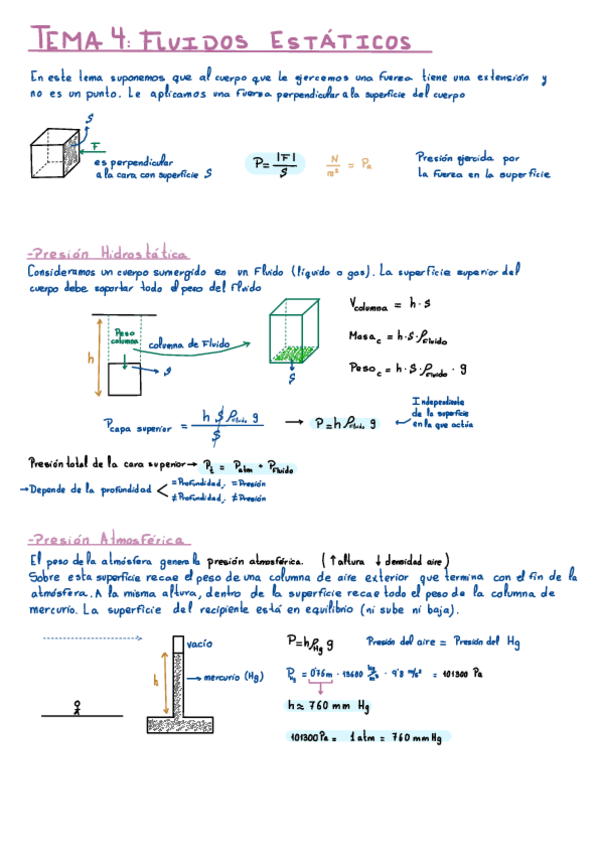 TEMA 4: FLUIDOS ESTÁTICOS
En este tema suponemos que al cuerpo que le ejercemos una fuerza tiene una extensión y
no es un punto. Le aplicamos una fuerza perpendicular a la superficie del cuerpo
S
F
es perpendicular
a la cara con superficie S
P = |F| / S
N / m² = Pa
Presión ejercida por
la fuerza en la superficie
-Presión Hidrostática
Consideramos un cuerpo sumergido en un fluido (líquido o gas). La superficie superior del
cuerpo debe soportar todo el peso del fluido
Peso
columna
h
columna de fluido
S
S
Vcolumna = h · S
Masa c = h · S · ρfluido
Peso c = h · S · ρfluido · g
Pcapa superior = h S ρfluido g / S → P = h ρfluido g
Independiente
de la superficie
en la que actúa
Presión total de la cara superior → Pt = Patm + Pfluido
→ Depende de la profundidad < = Profundidad, = Presión
≠ Profundidad, ≠ Presión
-Presión Atmosférica
El peso de la atmósfera genera la presión atmosférica. (↑altura ↓densidad aire)
Sobre esta superficie recae el peso de una columna de aire exterior que termina con el fin de la
atmósfera. A la misma altura, dentro de la superficie recae todo el peso de la columna de
mercurio. La superficie del recipiente está en equilibrio (ni sube ni baja).
vacío
h
mercurio (Hg)
P = h ρHg g
Presión del aire = Presión del Hg
PHg = 0'76m · 13600 kg/m³ · 9'8 m/s² = 101300 Pa
h ≈ 760 mm Hg
101300 Pa = 1 atm = 760 mmHg